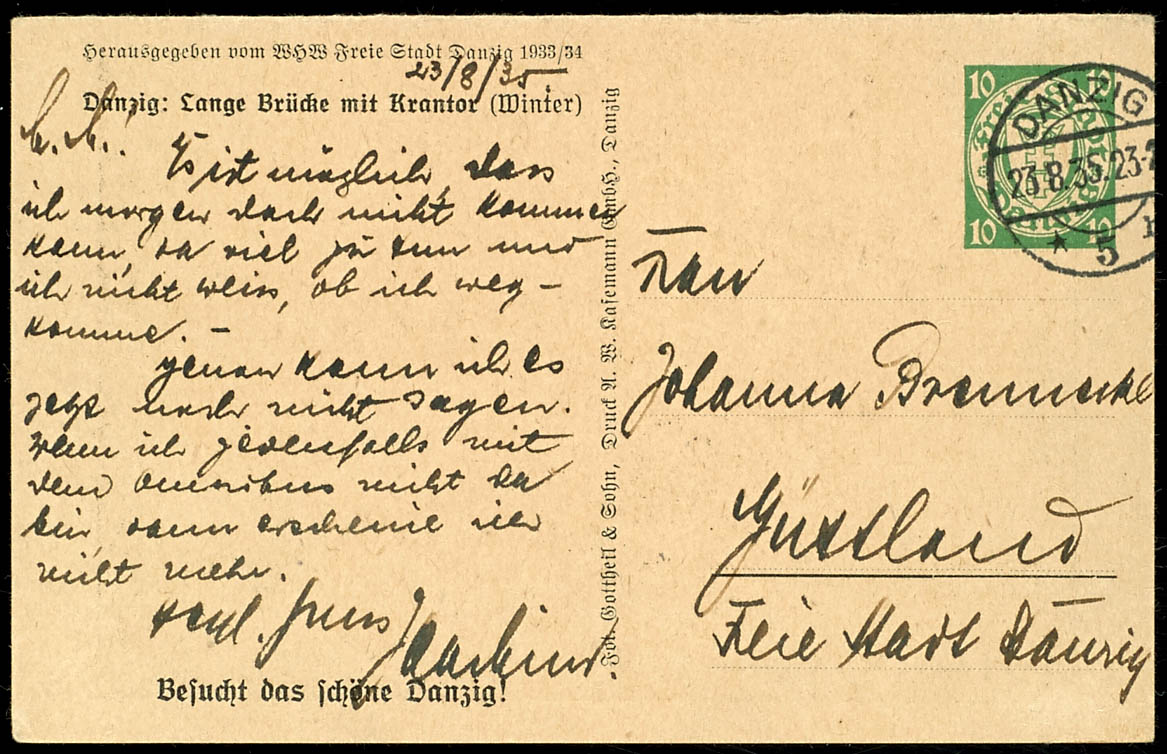 Herausgegeben vom WHW Freie Stadt Danzig 1933/34
23/8/35
Danzig: Lange Brücke mit Krantor (Winter)
L. M.!
Es ist möglich, dass
ich morgen doch nicht kommen
kann, da viel zu tun und
ich nicht weiss, ob ich weg-
komme. –
Genau kann ich es
jetzt noch nicht sagen.
Wenn ich jedenfalls mit
dem Omnibus nicht da
bin, dann erscheine ich
nicht mehr.
Herzl. Gruss
Joachim.
Besucht das schöne Danzig!
Fot. Gottheil & Sohn, Druck A. W. Kafemann GmbH., Danzig
10 10
10 10
DANZIG
23.8.35.23-
* 5
Frau
Johanna Brennecke
Güttland
Freie Stadt Danzig